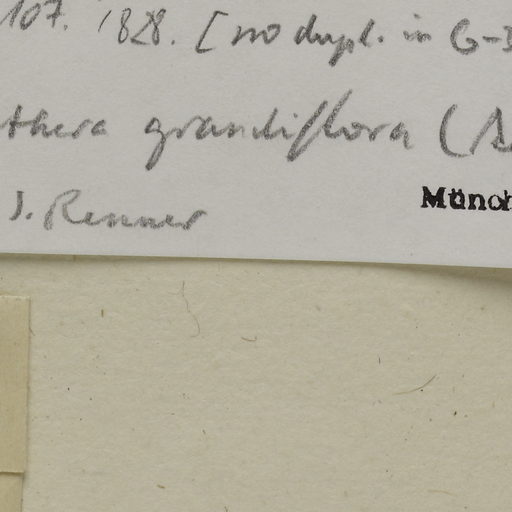 107. 1828. [no dupl. in G-D
thera grandiflora (A
S. Renner
Münch